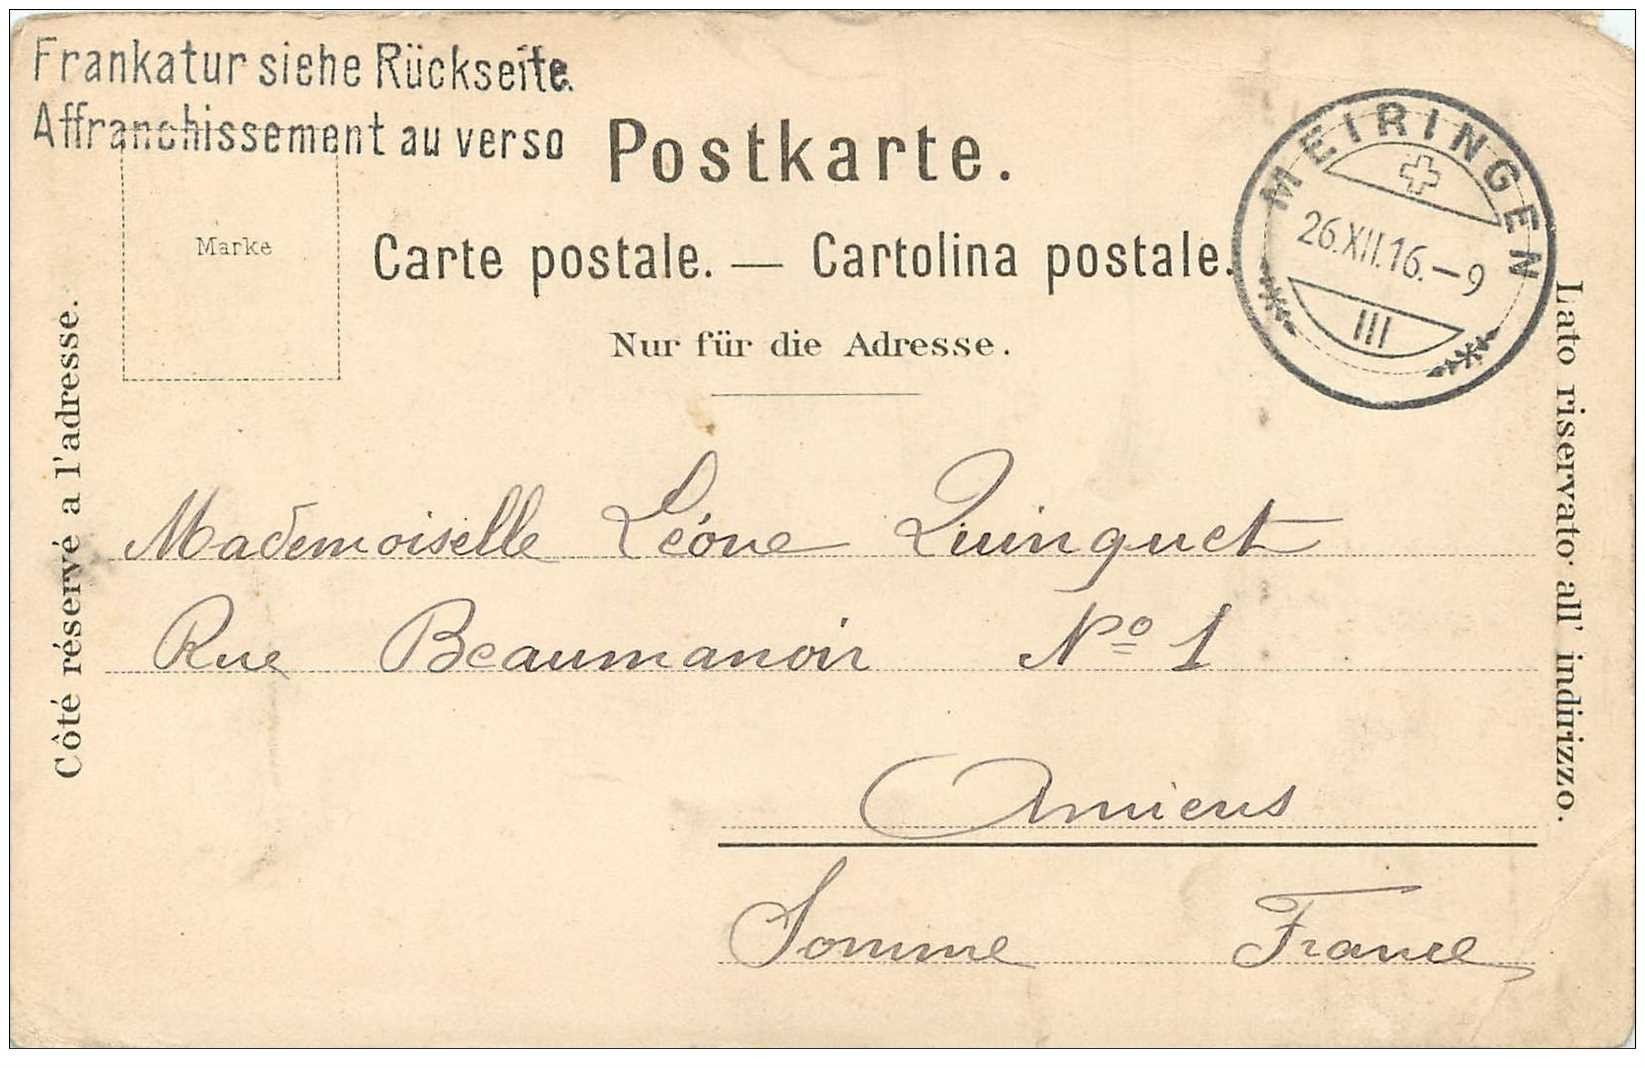 Frankatur siehe Rückseite.
Affranchissement au verso
Postkarte.
Marke
Carte postale. — Cartolina postale.
Nur für die Adresse.
MEIRINGEN
26.XII.16.–9
III
Côté réservé a l'adresse.
Lato riservato all' indirizzo.
Mademoiselle Léone Quinquet
Rue Beaumanoir Nº 1
Amiens
Somme France